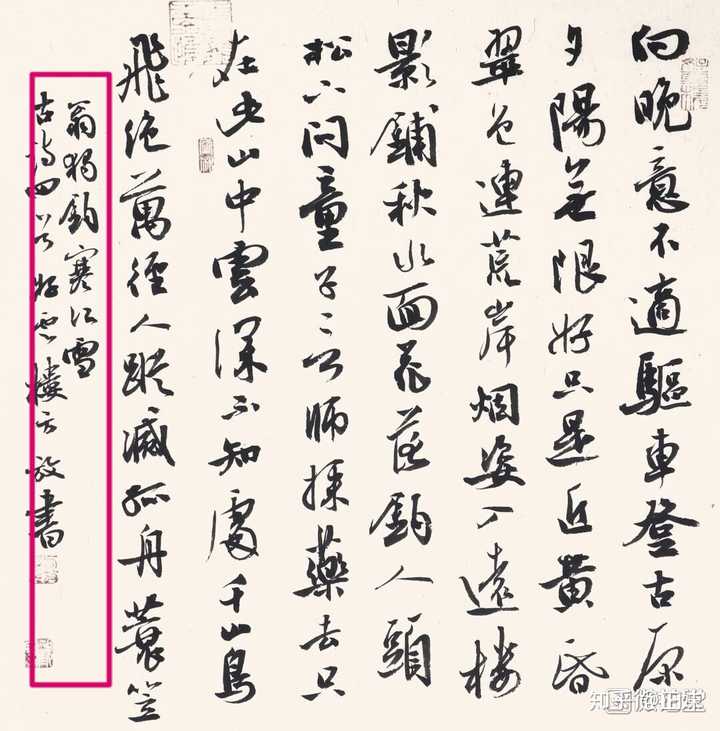 向晚意不適驅車登古原
夕陽無限好只是近黃昏
翠色連荒岸烟姿入遠樓
影鋪秋水面花落釣人頭
松下問童子言師採藥去只
在此山中雲深不知處千山鳥
飛絕萬徑人蹤滅孤舟蓑笠
翁獨釣寒江雪
古詩四首雲樓放書
知乎